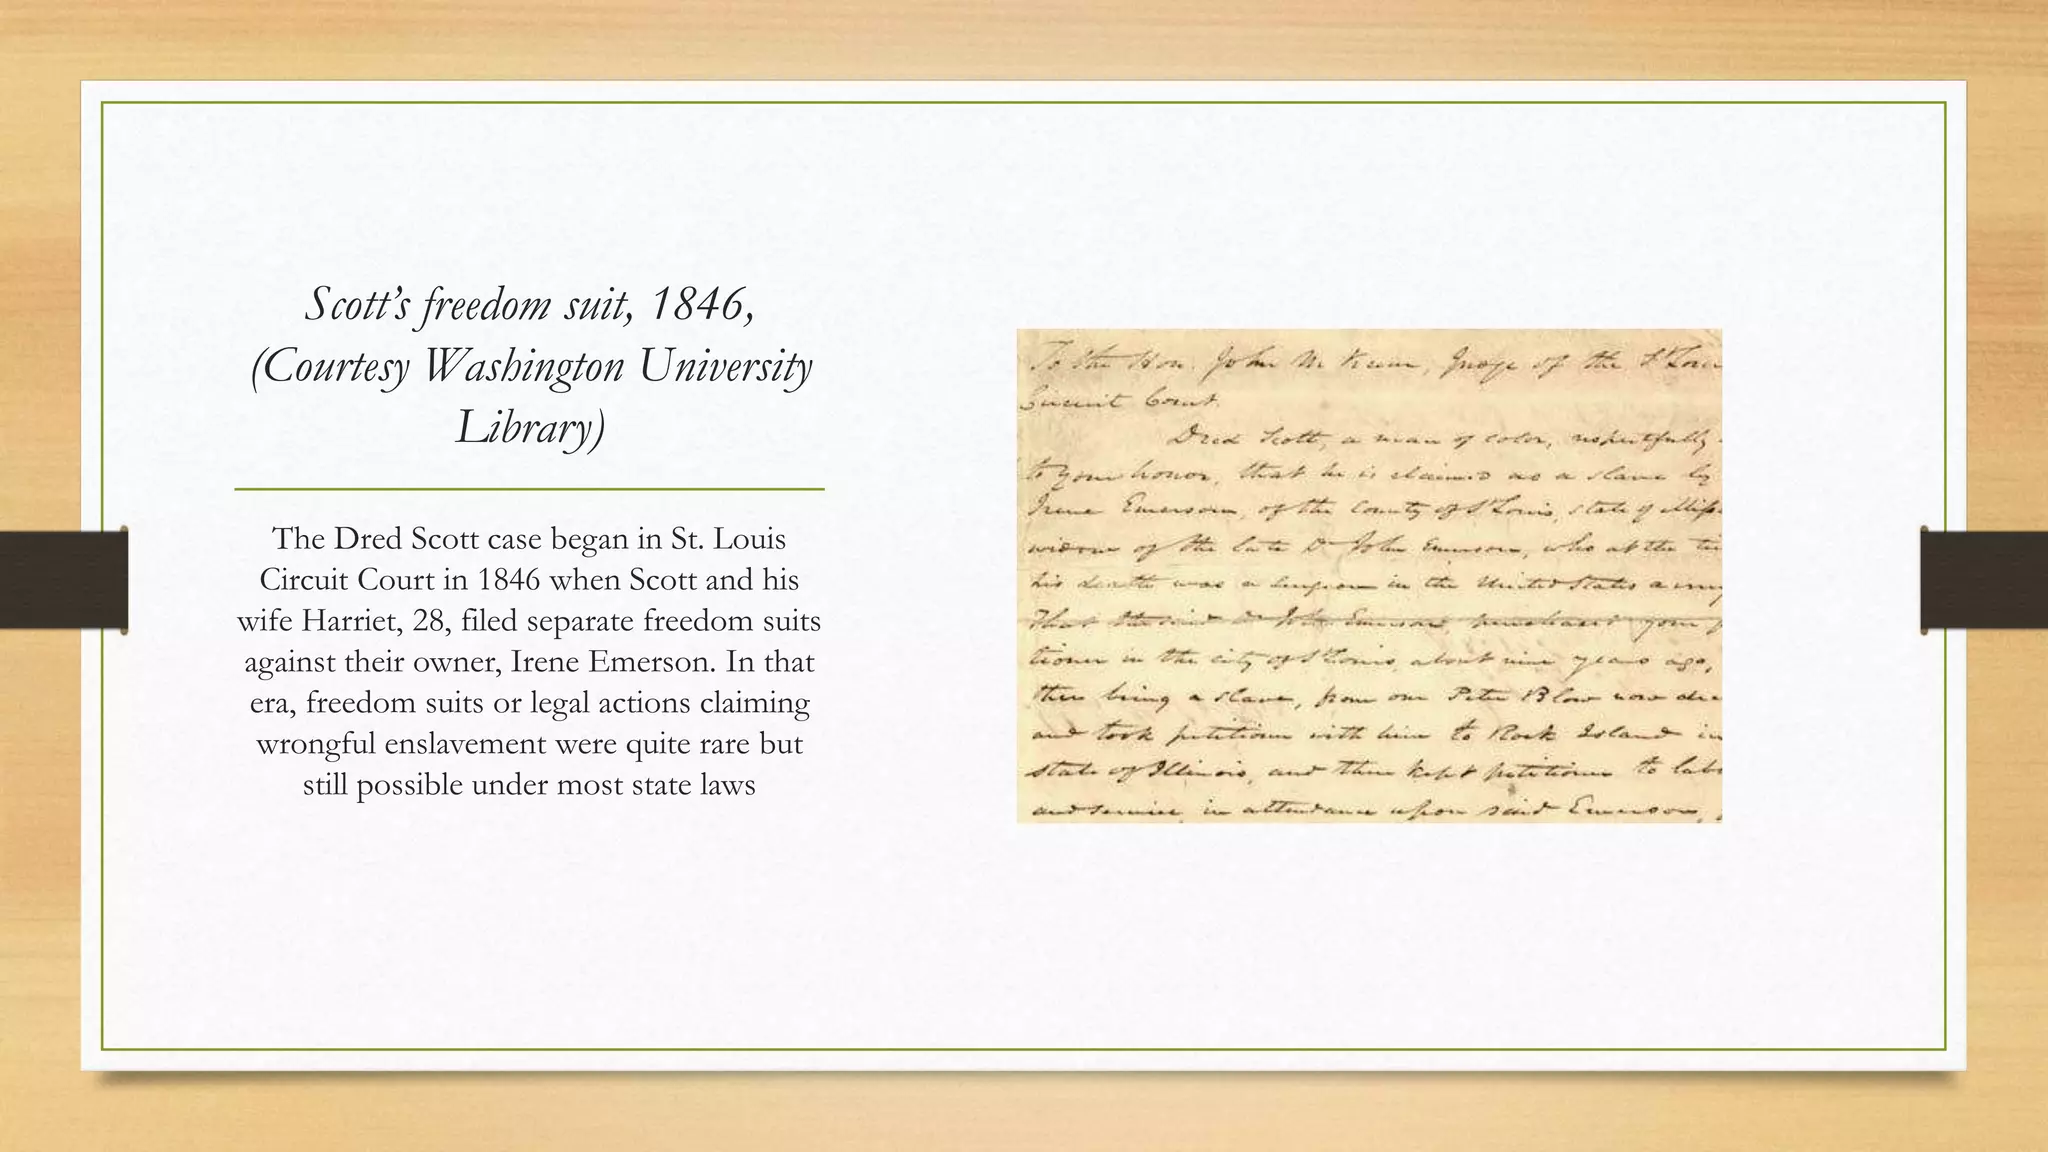 Scott’s freedom suit, 1846,
(Courtesy Washington University
Library)
The Dred Scott case began in St. Louis
Circuit Court in 1846 when Scott and his
wife Harriet, 28, filed separate freedom suits
against their owner, Irene Emerson. In that
era, freedom suits or legal actions claiming
wrongful enslavement were quite rare but
still possible under most state laws
To the Hon. John M Krum, Judge of the St Loui
Circuit Court.
Dred Scott, a man of color, respectfully
to your honor, that he is claimed as a slave by
Irene Emerson, of the County of St Louis, state of Misso
widow of the late Dr John Emerson, who at the ti
his death was a surgeon in the United States army
That the said Dr John Emerson, purchased your p
tioner in the city of St Louis, about nine years ago,
then being a slave, from one Peter Blow now dec
and took petitioner with him to Rock Island in
state of Illinois, and then kept petitioner to labo
and service, in attendance upon said Emerson,